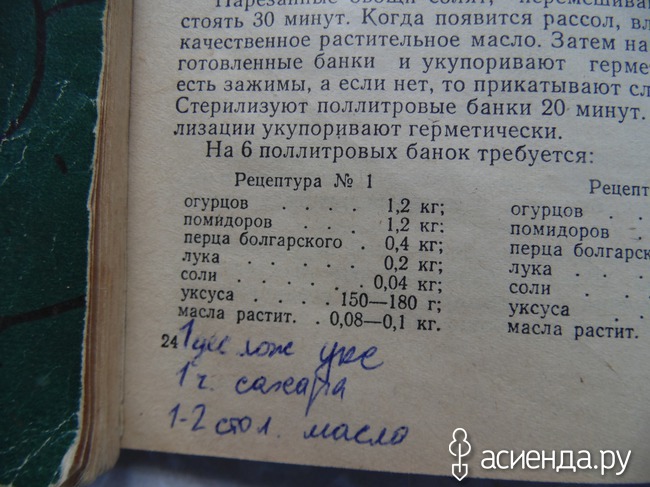 Нарезанные овощи солят, перемешива
стоять 30 минут. Когда появится рассол, вл
качественное растительное масло. Затем на
готовленные банки и укупоривают гермет
есть зажимы, а если нет, то прикатывают сл
Стерилизуют поллитровые банки 20 минут.
лизации укупоривают герметически.
На 6 поллитровых банок требуется:
Рецептура № 1
огурцов . . . . 1,2 кг;
помидоров . . . 1,2 кг;
перца болгарского . 0,4 кг;
лука . . . . . 0,2 кг;
соли . . . . . . 0,04 кг;
уксуса . . . . 150—180 г;
масла растит. . 0,08—0,1 кг.
Рецепт
огурцов . .
помидоров . .
перца болгарс
лука . .
соли . .
уксуса . .
масла растит.
24
1 лож укс
1 ч. сахара
1-2 стол. масла
асиенда.ру